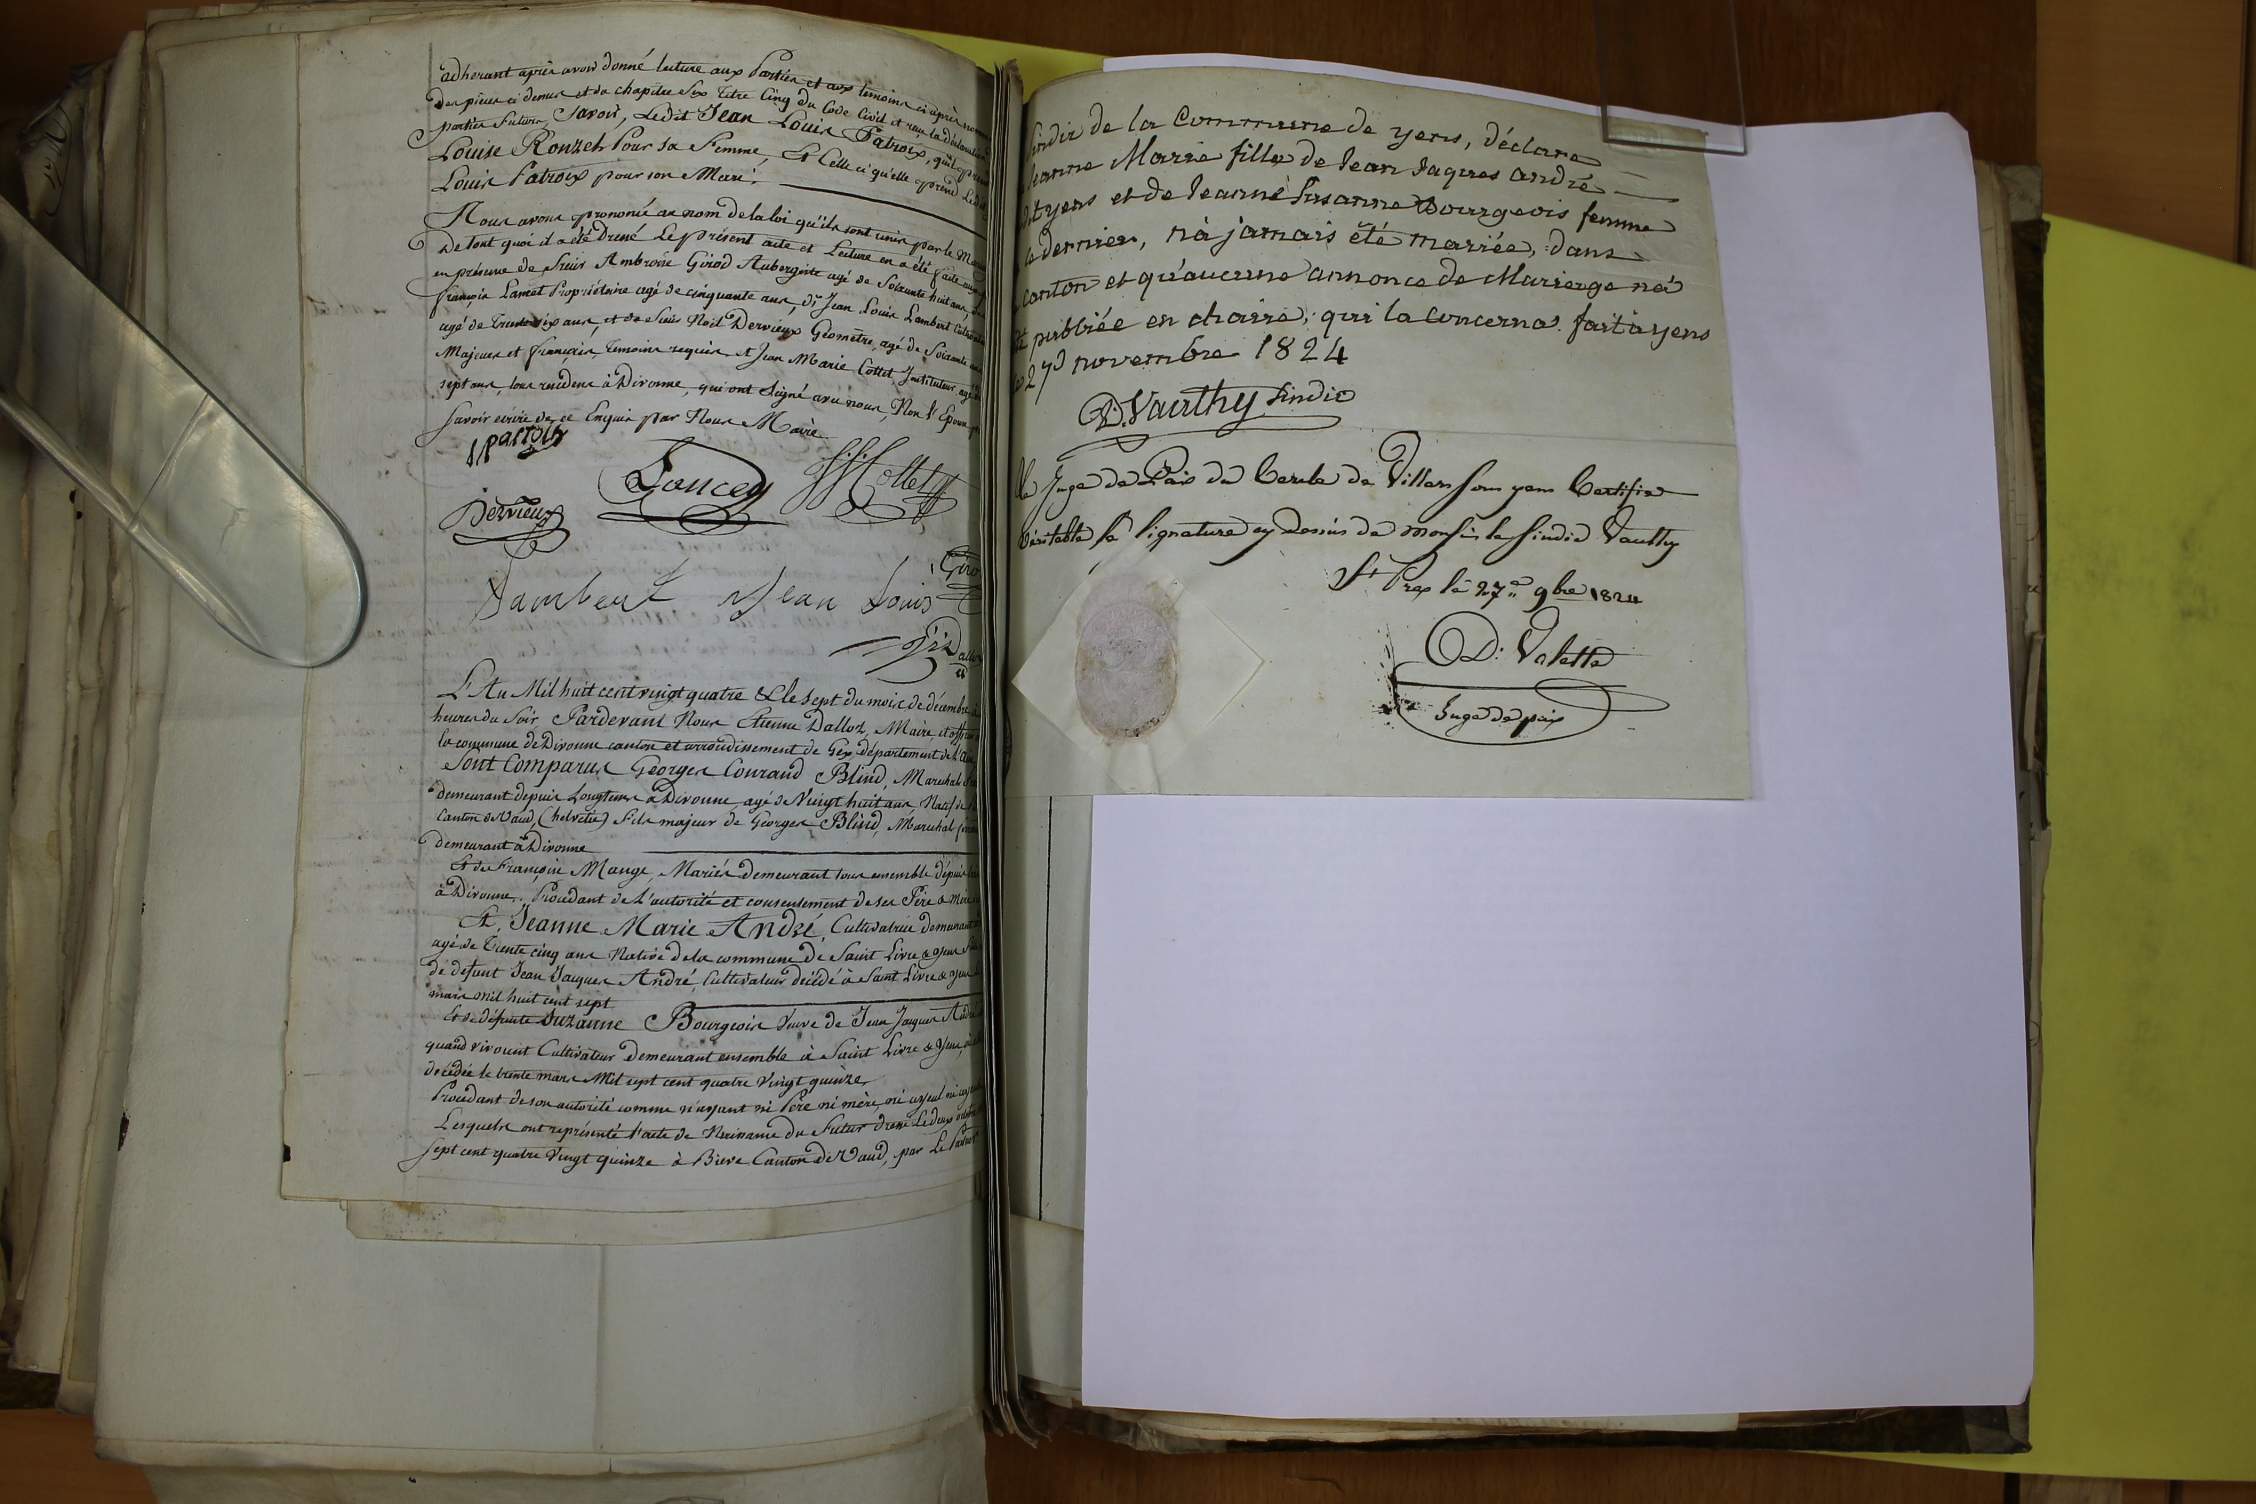 adherant après avoir donné lecture aux Parties et aux temoins ci après
des pièces ci dessus et du chapitre Six Titre Cinq du Code Civil et reçu la déclaration
parties futures, Savoir, Ledit Jean Louis Patroix, qu'il prend
Louise Ronzel Pour sa Femme, Et Celle ci qu'elle prend Ledit
Louis Patroix pour son Mari.
Nous avons prononcé au nom de la loi qu'ils sont unis par le
De tout quoi il a été Dressé Le présent acte et Lecture en a été faite
en présence de Sieur Ambroise Girod Aubergiste agé de Soixante huit ans,
françois Lamet Propriétaire agé de cinquante ans, Sr Jean Louis Lambert
agé de Trente six ans, et de Sieur Noël Dervieux Géometre, agé de Soixante
Majeurs et français, temoins requis et Jean Marie Cottet Instituteur, agé
sept ans, tous residens à Divonne, qui ont Signé avec nous, Non l'Epouse
savoir ecrire de ce Enquis par Nous Maire
Dervieux
Lambert Jean Louis
Giro
L'An Mil huit cent vingt quatre & le sept du mois de décembre
heures du Soir Pardevant Nous Etienne Dalloz, Maire et
la commune de Divonne canton et arrondissement de Gex département de l'Ain
Sont Comparus Georges Conraud Blind, Marechal
demeurant depuis Longtems à Divonne, agé de Vingt huit ans, Natif de
Canton de Vaud, (helvetie) fils majeur de Georges Blind, Marechal
demeurant à Divonne
Et de Françoise Mange, Mariés demeurant tous ensemble depuis
à Divonne. Procedant de l'autorité et consentement de ses Père & Mère
Et, Jeanne Marie André, Cultivatrice demeurant
agée de Trente cinq ans Native de la commune de Saint Livre & yens
de defunt Jean Jacques André, Cultivateur décédé à Saint Livre & yens
mars mil huit cent sept
Et de défunte Suzanne Bourgeois Veuve de Jean Jacques André
quand vivoient Cultivateur demeurant ensemble à Saint Livre & yens,
decédée le trente mars Mil sept cent quatre Vingt quinze,
Procédant de son autorité comme n'ayant ni Père ni mère, ni ayeul ni
Lesquels ont représenté l'acte de Naissance du Futur dressé Le deux
sept cent quatre Vingt quinze à Biere Canton de Vaud, par Le
Sindic de la Commune de yens, déclare
Jeanne Marie fille de Jean Jaques andré
yens et de Jeanne Susanne Bourgeois femme
dernier, n'à jamais été mariée, dans
canton et qu'aucune annonce de Mariage n'à
été publiée en chaire; qui la concerna. fait à yens
27 novembre 1824
D. Vauthy Sindic
Le Juge de Paix du Cercle de Villars sous yens Certifie
Véritable la Signature cy dessus de monsieur le Sindic Vauthy
St Prex le 27e 9bre 1824
D: Valette
Juge de paix